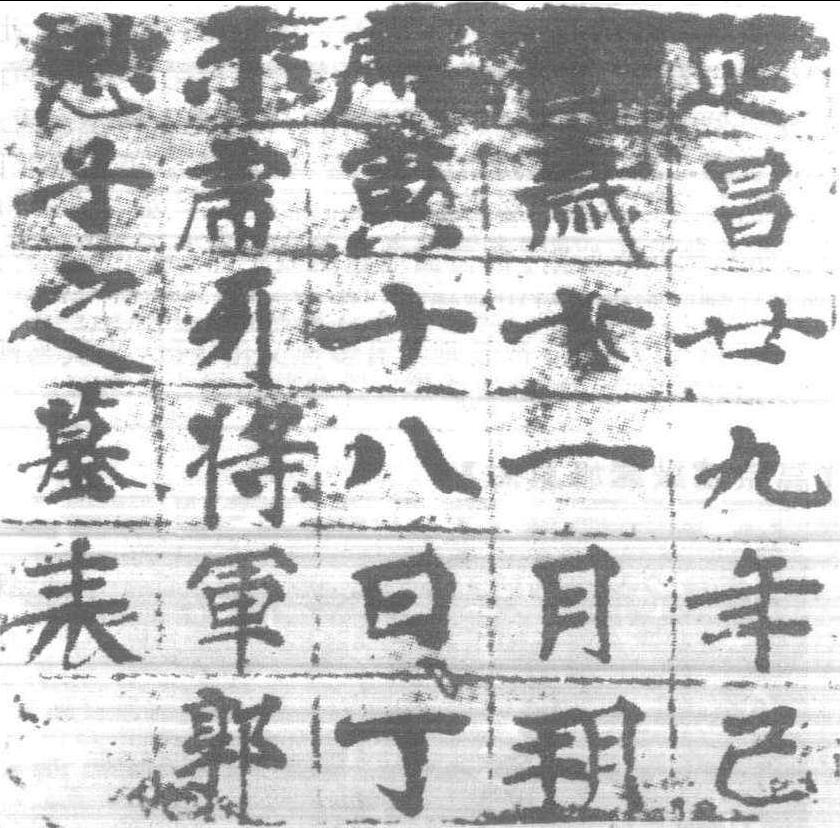 延昌廿九年己
歲十一月朔
庚寅十八日丁
未肅列將軍郭
恩子之墓表